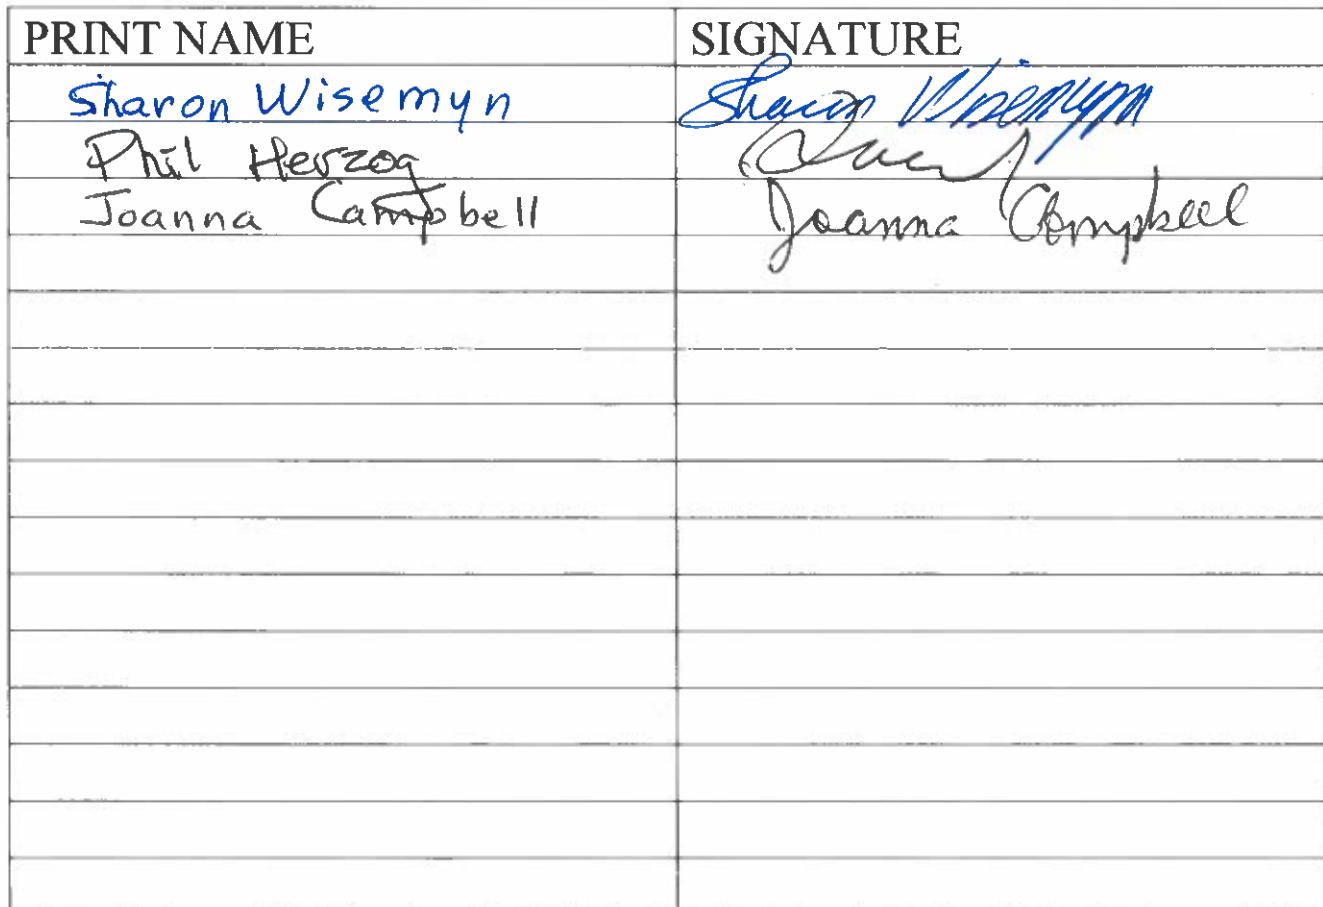 PRINT NAME SIGNATURE
Sharon Wisemyn Sharon Wisemyn
Phil Herzog
Joanna Campbell Joanna Campbell